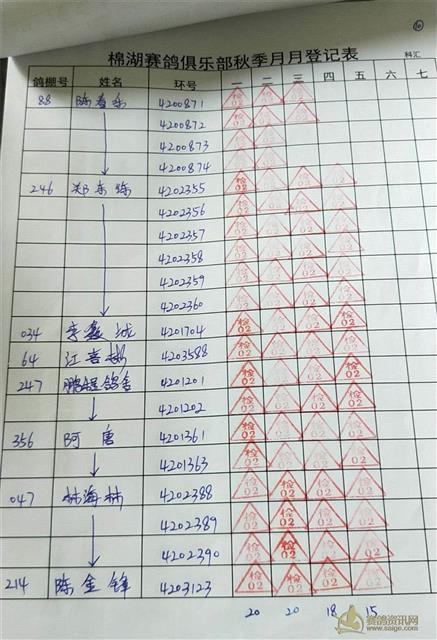 棉湖赛鸽俱乐部秋季月月登记表
科汇
鸽棚号 姓名 环号 一 二 三 四 五 六 七
88 4200871 检02 检02 检02
4200872 检02 检02 检02
4200873 检02 检02
4200874 检02 检02
246 4202355 检02 检02 检02 检02
4202356 检02 检02 检02 检02
4202357 检02 检02 检02 检02
4202358 检02 检02 检02 检02
4202359 检02 检02 检02 检02
4202360 检02 检02 检02 检02
034 李鑫城 4201704 检02 检02 检02 检02
64 江喜彬 4203588 检02 检02 检02 检02
247 鹏煜鸽舍 4201201 检02 检02 检02 检02
4201202 检02 检02 检02 检02
356 阿唐 4201361 检02 检02 检02 检02
4201363 检02 检02 检02 检02
047 林海林 4202388 检02 检02 检02 检02
4202389 检02 检02 检02 检02
4202390 检02 检02 检02 检02
214 陈金锋 4203123 检02 检02 检02 检02
20 20 18 15
赛鸽资讯网
www.saige.com